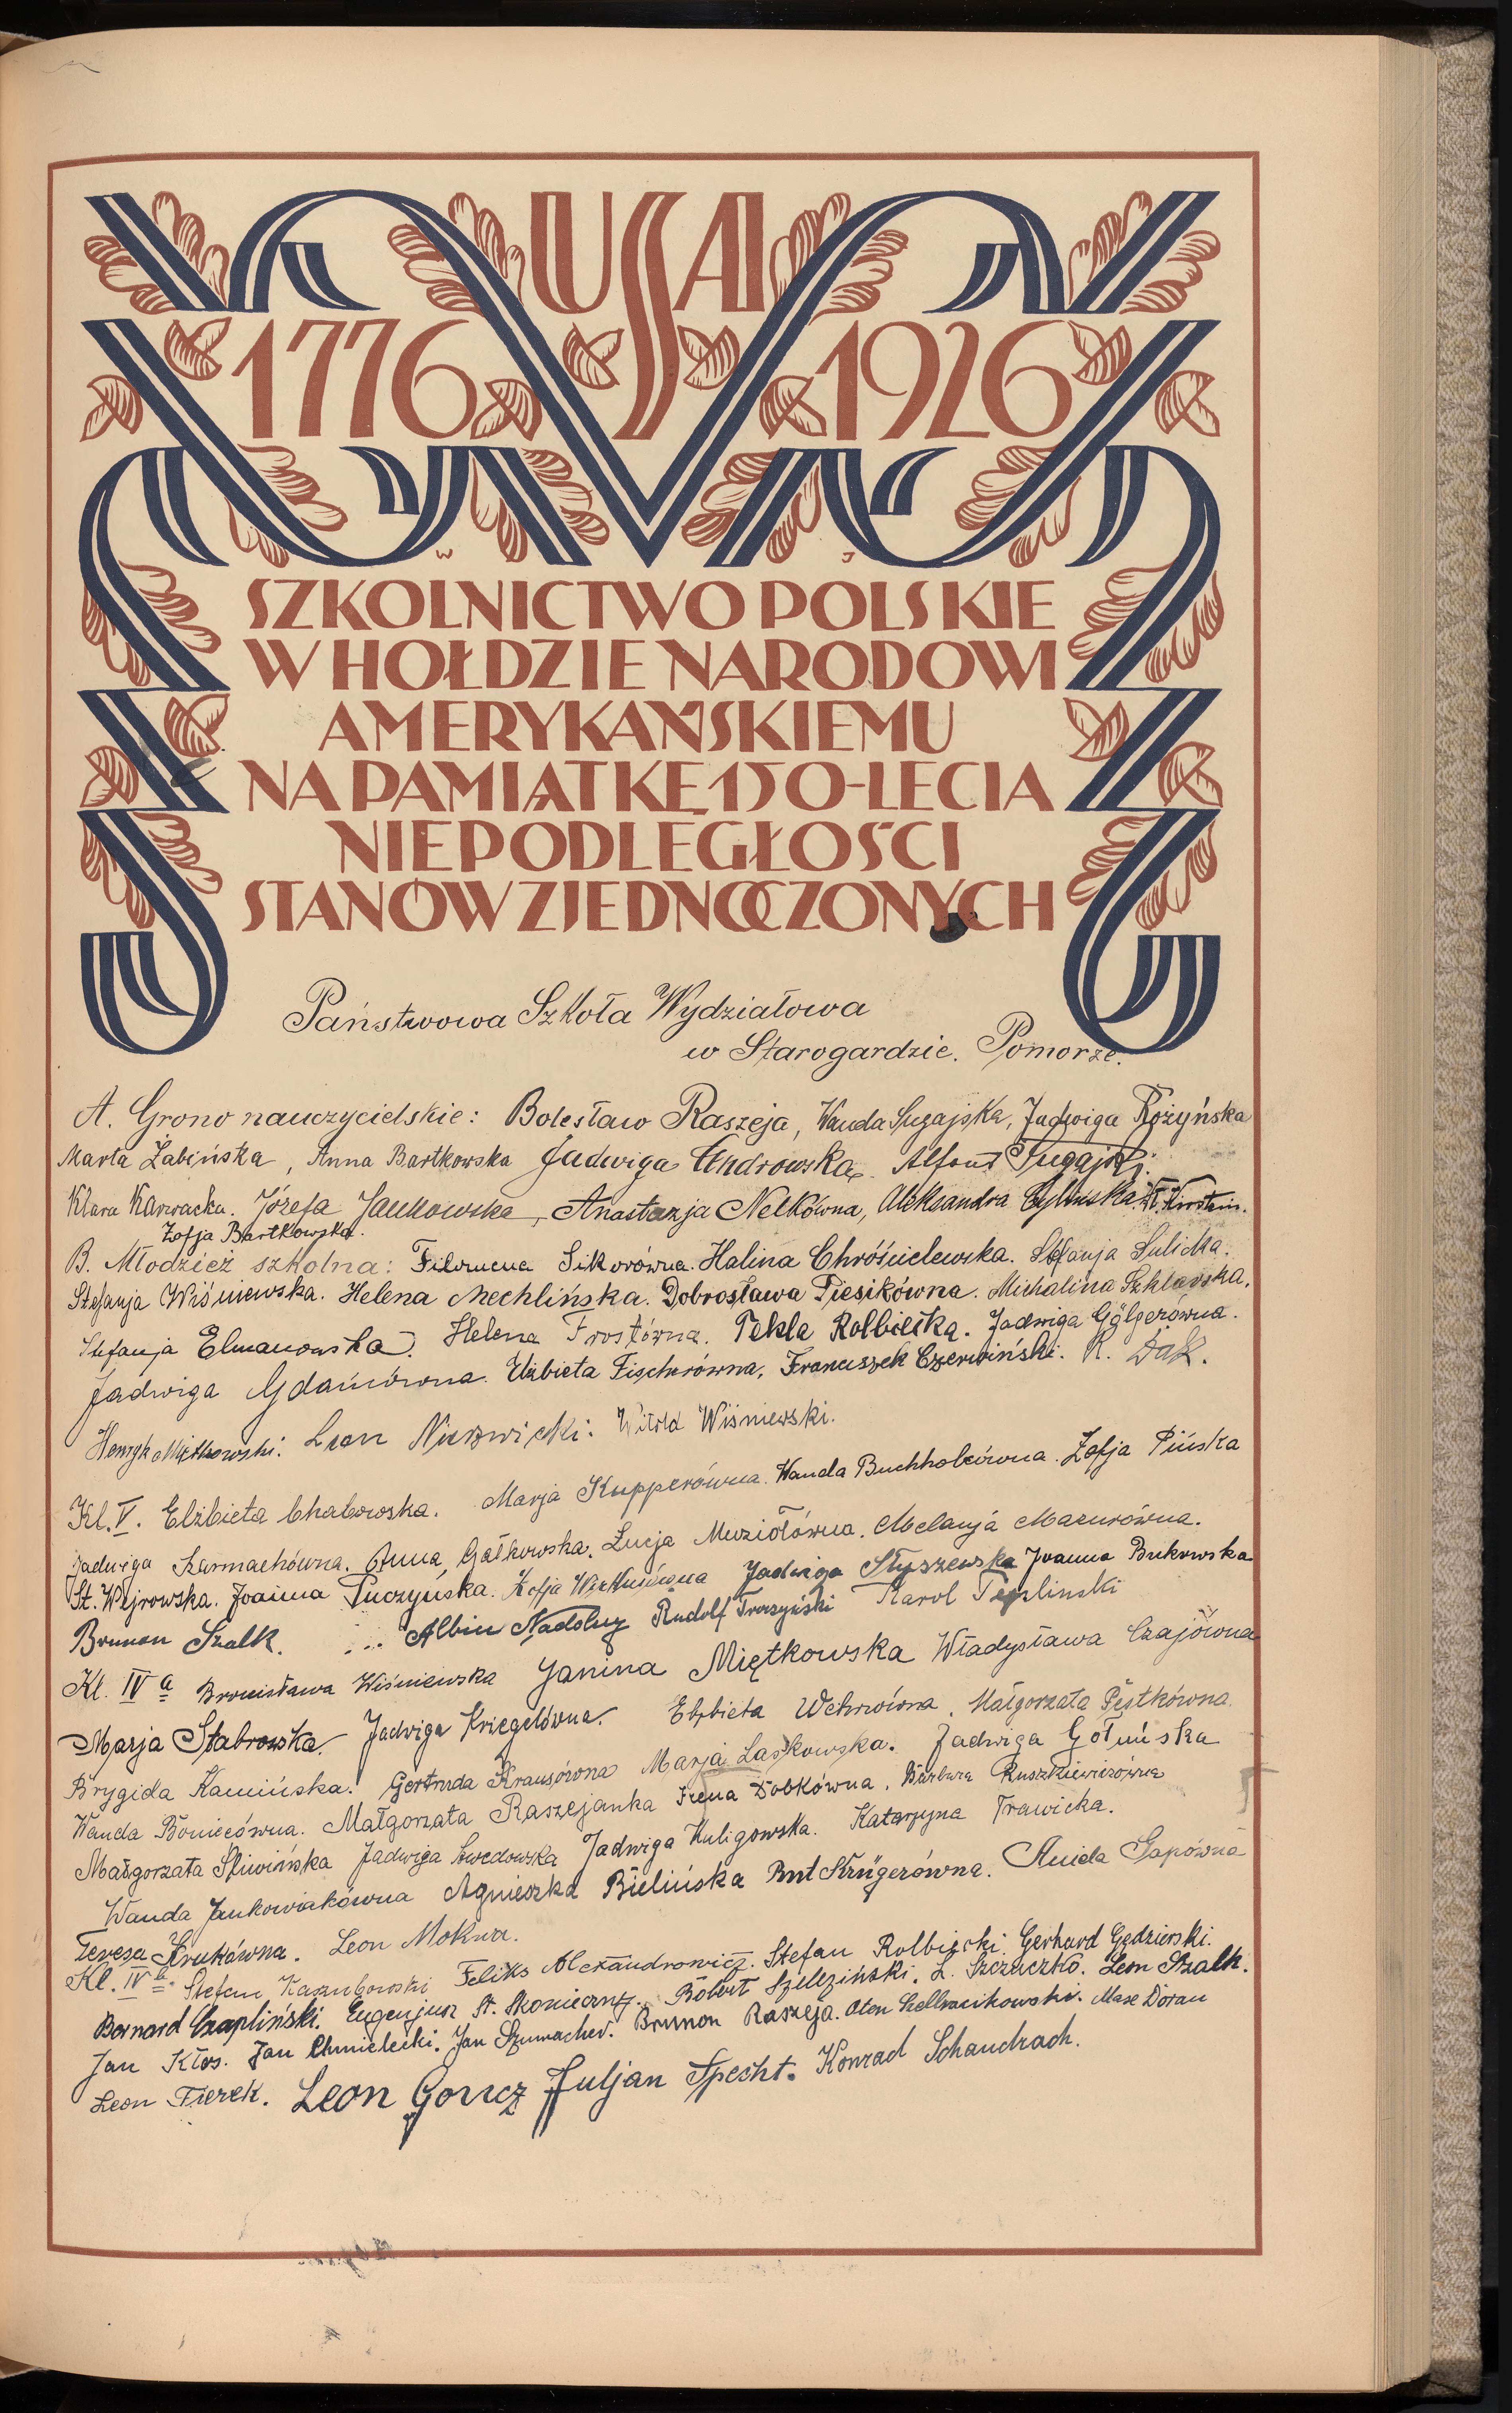 USA
1776 1926
W J
SZKOLNICTWO POLSKIE
W HOŁDZIE NARODOWI
AMERYKAŃSKIEMU
NA PAMIĄTKĘ 150-LECIA
NIEPODLEGŁOŚCI
STANÓW ZJEDNOCZONYCH
Państwowa Szkoła Wydziałowa
w Starogardzie. Pomorze.
A. Grono nauczycielskie: Bolesław Raszeja, Wanda Sugajska, Jadwiga Różyńska
Marta Żabińska, Anna Bartkowska Jadwiga Androwska Alfons
Klara Karwacka. Józefa Jankowska, Anastazja Nelkówna, Aleksandra
Zofja Bartkowska.
B. Młodzież szkolna: Filomena Sikorówna. Halina Chróścielewska. Stefanja Sulicka.
Stefanja Wiśniewska. Helena Mechlińska. Dobrosława Piesikówna. Michalina Szklarska.
Stefanja Elmanowska. Helena Frostówna. Tekla Rolbiecka. Jadwiga Gölgerówna.
Jadwiga Gdańcówna. Elżbieta Fischerówna, Franciszek Czerwiński. R. Dąk.
Henryk Miętkowski. Leon Nierzwicki. Witold Wiśniewski.
Kl. V. Elżbieta Chabowska. Marja Kupperówna. Wanda Buchholcówna. Zofja Pińska
Jadwiga Karmachówna. Anna Gałkowska. Łucja Muziołówna. Melanja Mazurówna.
St. Wejrowska. Joanna Puczyńska. Zofja Jadwiga Słyszewska Joanna Bukowska
Brunon Szalk. Albin Nadolny Rudolf Troszyński Karol Templinski
Kl. IV a Bronisława Wiśniewska Janina Miętkowska Władysława Czajówna
Marja Stabrowska. Jadwiga Kriegelówna. Elżbieta Wehrówna. Małgorzata Pestkówna.
Brygida Kamińska. Gertruda Krauzówna Marja Laskowska. Jadwiga Gołuńska
Wanda Boniecówna. Małgorzata Raszejanka Irena Dobkówna. Barbara Ruszkiewiczówna
Małgorzata Śliwińska Jadwiga Szwedowska Jadwiga Kuligowska. Katarzyna Trawicka.
Wanda Jankowiakówna Agnieszka Bielińska Krügerówna. Aniela Gapówna
Teresa Krukówna. Leon Mokwa.
Kl. IV b. Stefan Kaszubowski Feliks Alexandrowicz. Stefan Rolbiecki. Gerhard Gędzierski.
Bernard Czapliński. Eugenjusz St. Skonieczny. Robert Szeleziński. L. Szczuczko. Leon Szalk.
Jan Kłos. Jan Chmielecki. Jan Szumacher. Brunon Raszeja. Oton Maxe Doran
Leon Fierek. Leon Goncz Juljan Specht. Konrad Schandrach.